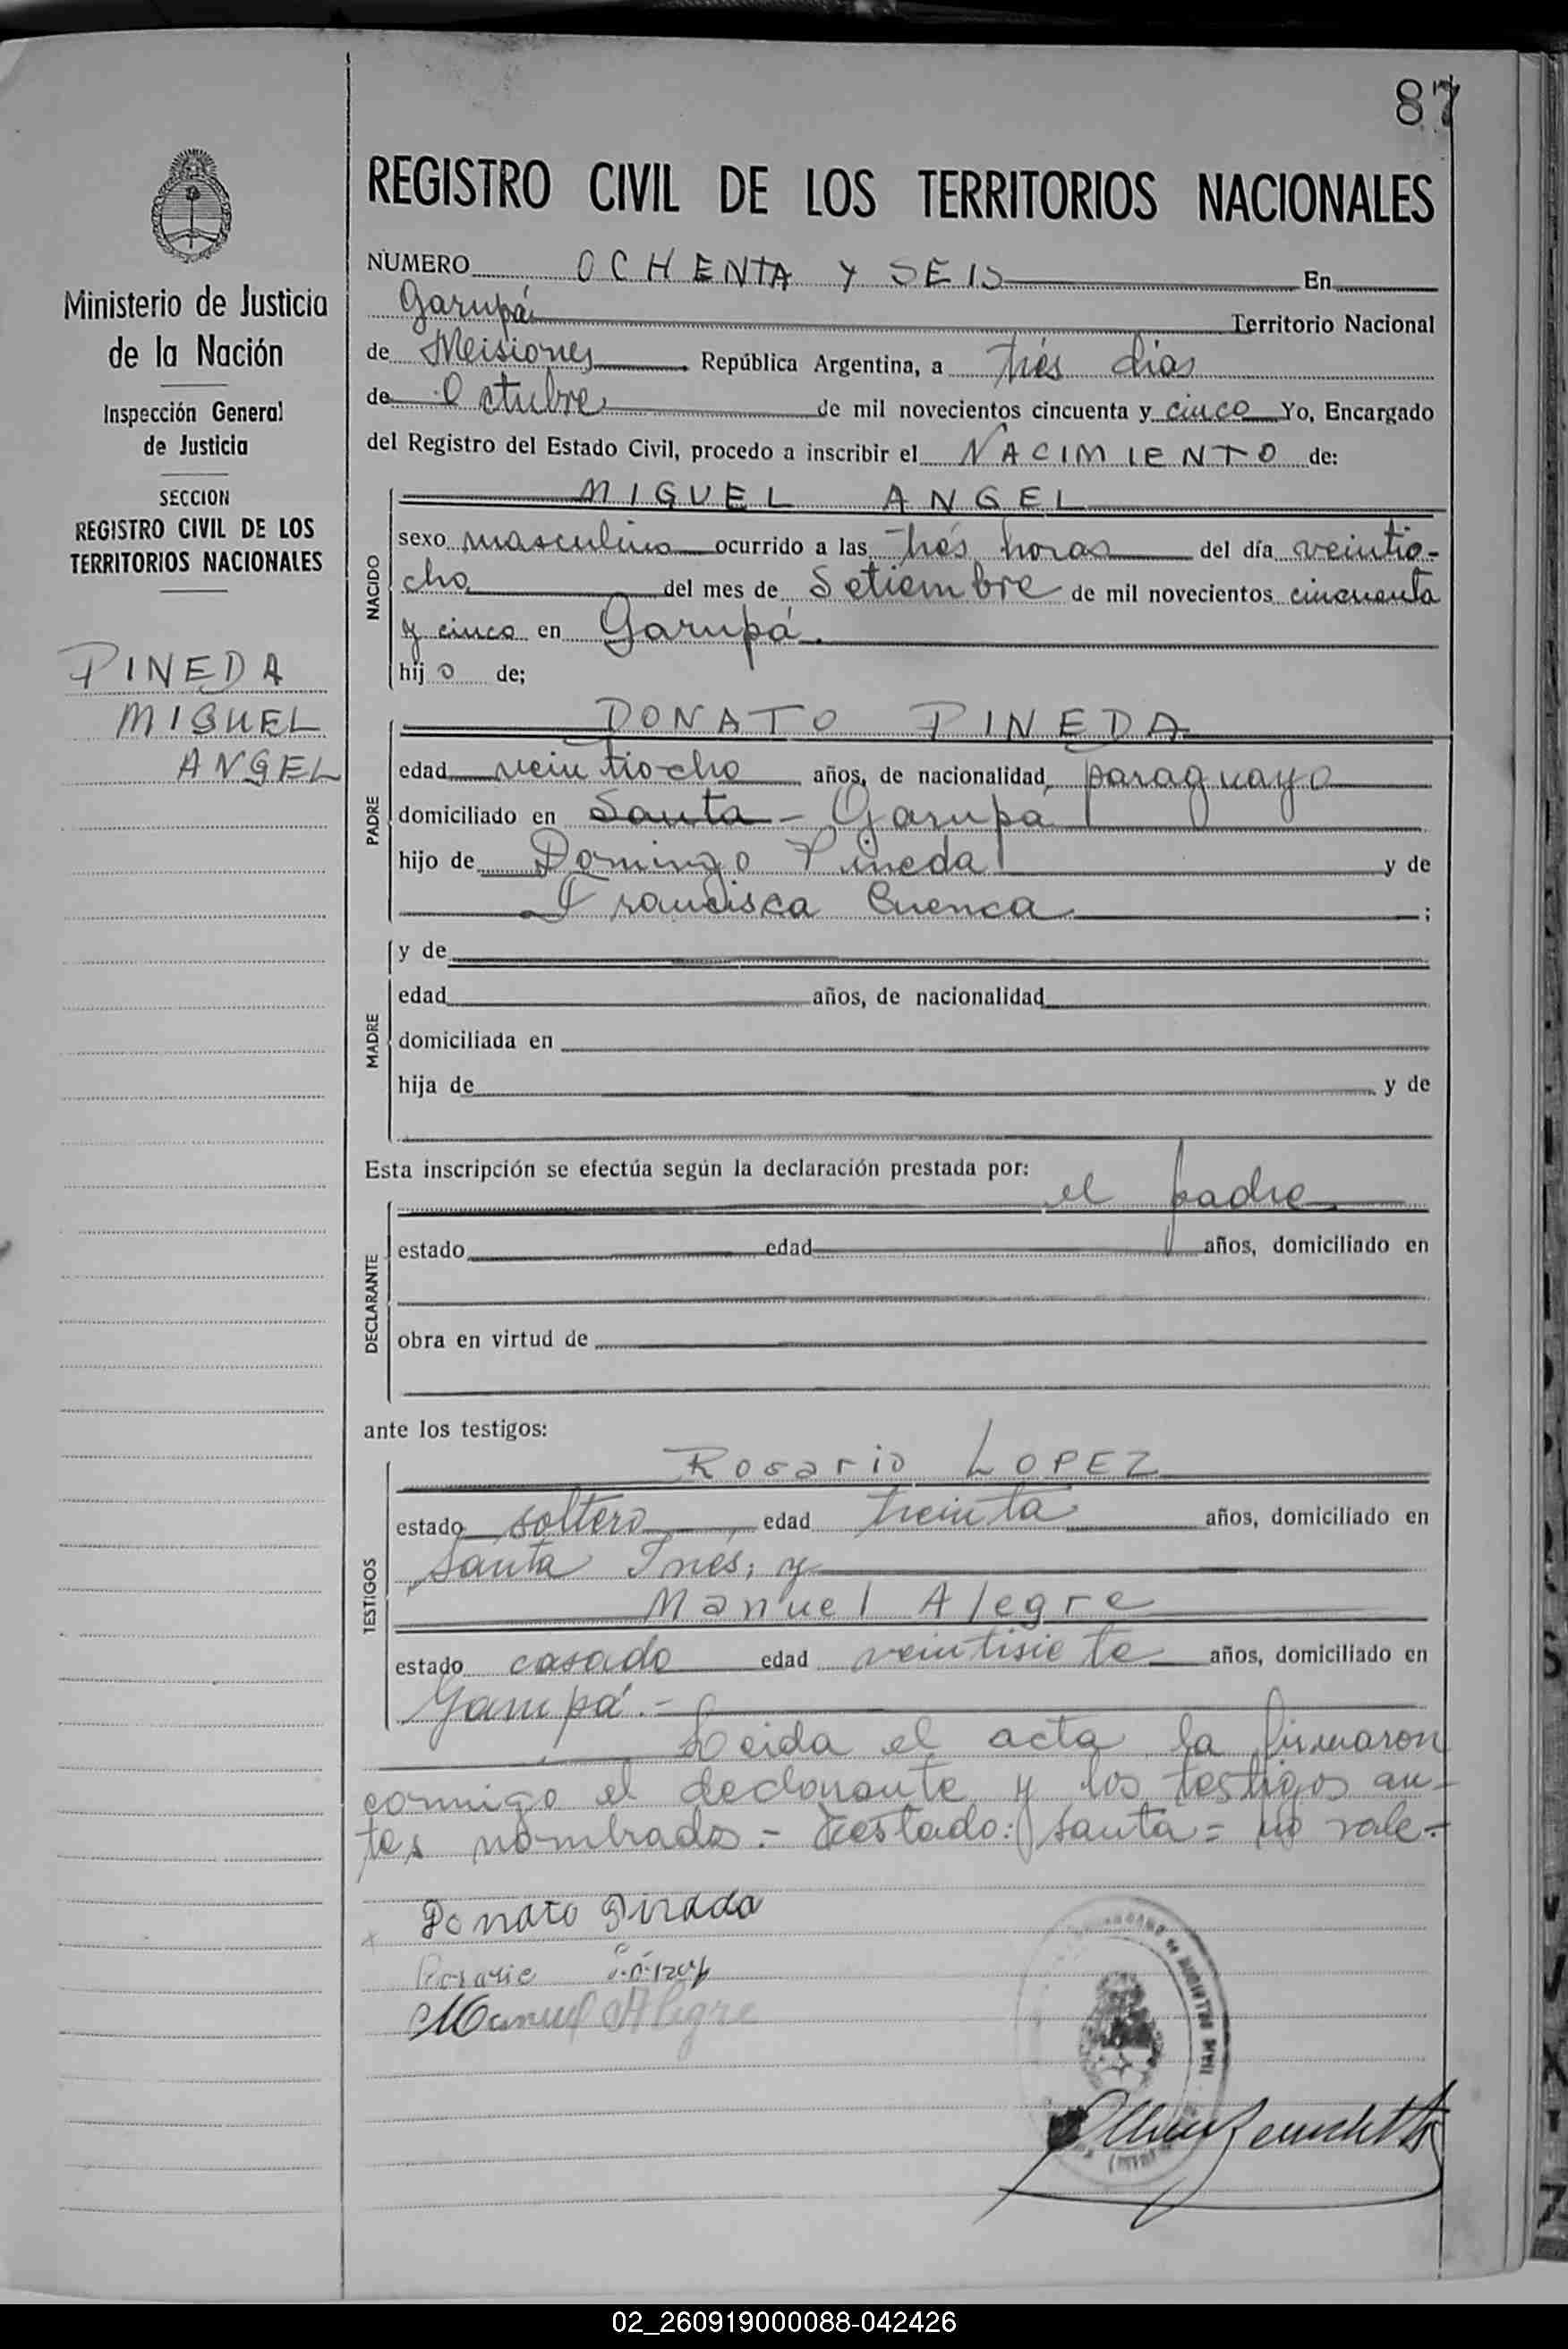 87
REGISTRO CIVIL DE LOS TERRITORIOS NACIONALES
Ministerio de Justicia
de la Nación
Inspección General
de Justicia
SECCION
REGISTRO CIVIL DE LOS
TERRITORIOS NACIONALES
PINEDA
MIGUEL
ANGEL
NUMERO OCHENTA Y SEIS En
Garupá Territorio Nacional
de Misiones República Argentina, a tres dias
de Octubre de mil novecientos cincuenta y cinco Yo, Encargado
del Registro del Estado Civil, procedo a inscribir el NACIMIENTO de:
NACIDO
MIGUEL ANGEL
sexo masculino ocurrido a las tres horas del día veintio-
cho del mes de Setiembre de mil novecientos cincuenta
y cinco en Garupá.
hijo de;
PADRE
DONATO PINEDA
edad veintiocho años, de nacionalidad paraguayo
domiciliado en Santa - Garupá
hijo de Domingo Pineda y de
Francisca Cuenca ;
MADRE
y de
edad años, de nacionalidad
domiciliada en
hija de y de
Esta inscripción se efectúa según la declaración prestada por:
el padre
DECLARANTE
estado edad años, domiciliado en
obra en virtud de
ante los testigos:
TESTIGOS
Rosario LOPEZ
estado soltero edad treinta años, domiciliado en
Santa Inés; y
Manuel Alegre
estado casado edad veintisiete años, domiciliado en
Garupá.-
Leida el acta la firmaron
conmigo el declarante y los testigos an-
tes nombrados.- Testado: Santa = no vale.-
Donato Pinada
Rosario
Manuel Alegre
02_260919000088-042426